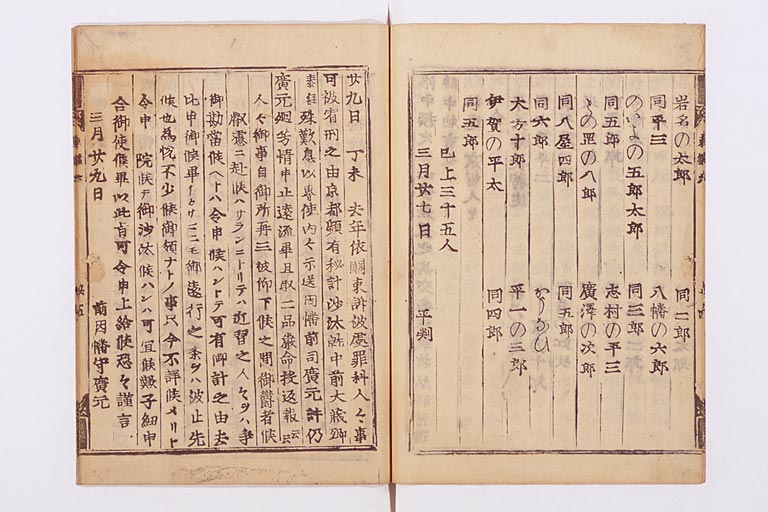 岩名の太郎　同二郎
同平三　八幡の六郎
のいよの五郎太郎　同三郎
同五郎　志村の平三
の八郎　廣澤の次郎
同八屋四郎　同五郎
同六郎　かうかひ
大方十郎　平一の三郎
伊賀の平太　同四郎
同五郎
已上三十五人
三月廿七日　平判
廿九日　丁未　去年依關東訴被處罪科人〻事
可被宥刑之由京都頗有秘計沙汰就中前大藏卿
泰經殊歎息以專使内〻示送因幡前司廣元許仍
廣元廻芳情申止遠流畢且取二品嚴命投返報云云
人〻御事自御所再三被仰下候之間御欝者候
叡慮ニ起候ハサランニトリテハ近習之人〻ヲハ争
御勘當候ヘトハ令申候ハントテ可有御計之由去
比申御候畢ミニモ御遠行之条ヲハ波止先
候也為悦不少候御領ナトノ事只今不詳候メリト
令申　院候テ御沙汰候ハンハ可宜候歟子細申
合御使候畢以此旨可令申上給候恐〻謹言
三月廿九日
前因幡守廣元